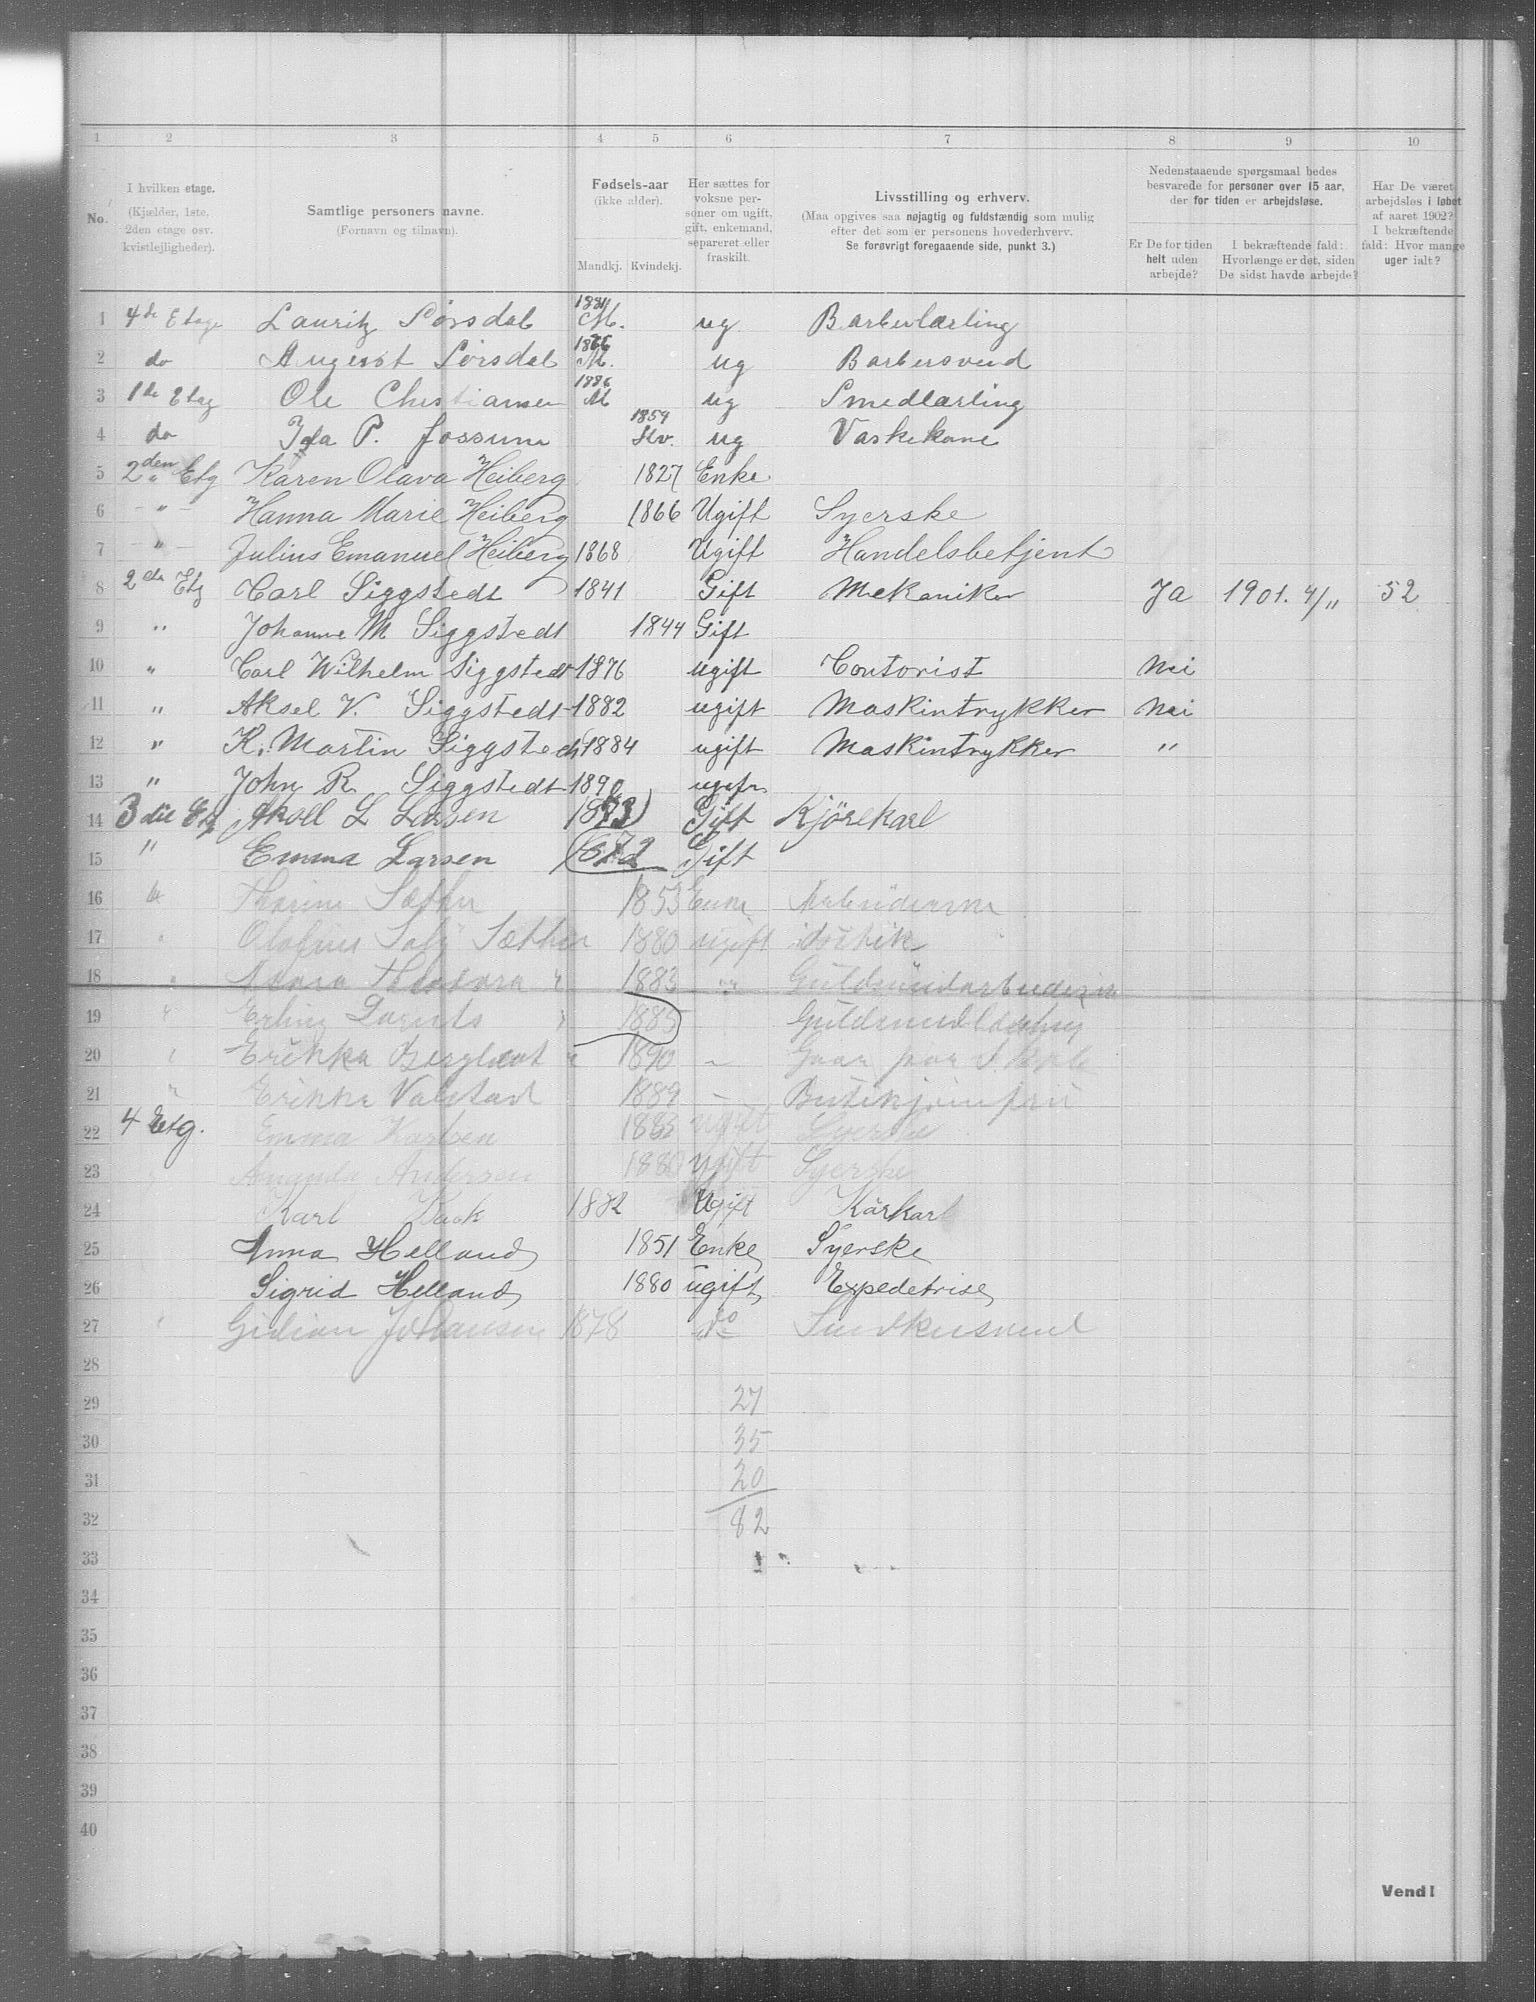 1 2 3 4 5 6 7 8 9 10
No.
I hvilken etage.
(Kjælder, 1ste,
2den etage osv.
kvistlejligheder).
Samtlige personers navne.
(Fornavn og tilnavn).
Fødsels-aar
(ikke alder).
Mandkj. Kvindekj.
Her sættes for
voksne per-
soner om ugift,
gift, enkemand,
separeret eller
fraskilt.
Livsstilling og erhverv.
(Maa opgives saa nøjagtig og fuldstændig som mulig
efter det som er personens hovederhverv.
Se forøvrigt foregaaende side, punkt 3.)
Nedenstaaende spørgsmaal bedes
besvarede for personer over 15 aar,
der for tiden er arbejdsløse.
Er De for tiden
helt uden
arbejde?
I bekræftende fald:
Hvorlænge er det, siden
De sidst havde arbejde?
Har De været
arbejdsløs i løbet
af aaret 1902?
I bekræftende
fald: Hvor mange
uger ialt?
1 4de Etage Lauritz Sørsdal M. ug Barberlærling
2 do August Sørsdal M. ug Barbersvend
3 1de Etag Ole Christiansen 1886 M ug Smedlærling
4 do Ida P. Fossum 1859 Kv. ug Vaskekone
5 2den Etg Karen Olava Heiberg 1827 Enke
6 - " - Hanna Marie Heiberg 1866 Ugift Syerske
7 - " - Julius Emanuel Heiberg 1868 Ugift Handelsbetjent
8 2den Etg Carl Siggstedt 1841 Gift Mekaniker Ja 1901. 4/11 52
9 " Johanne M Siggstedt 1844 Gift
10 " Carl Wilhelm Siggstedt 1876 ugift Contorist Nei
11 " Aksel V. Siggstedt 1882 ugift Maskintrykker Nei
12 " K. Martin Siggstedt 1884 ugift Maskintrykker "
13 " John R Siggstedt 1890
14 3die Etg L Larsen 1873 Gift Kjørekarl
15 " Emma Larsen 1872 Gift
16 " Sæther 1853 Enke
17 " Olafine Sæther 1880 ugift
18 " " 1883 "
19 " Erling " 1885
20 " Erikka " 1890 - Gaar paa Skole
21 " Erikka Valstad 1889 - Butikjomfru
22 4 Etg. Emma Karlsen 1883 ugift Syerske
23 " Amanda Andersen 1880 ugift Syerske
24 Karl 1872 Ugift Kørkarl
25 Anna Helland 1851 Enke Syerske
26 Sigrid Helland 1880 ugift Expedetrise
27 " Johansen 1878 do Snedkersvend
28
29 27
30 35
31 20
32 82
33
34
35
36
37
38
39
40
Vend!